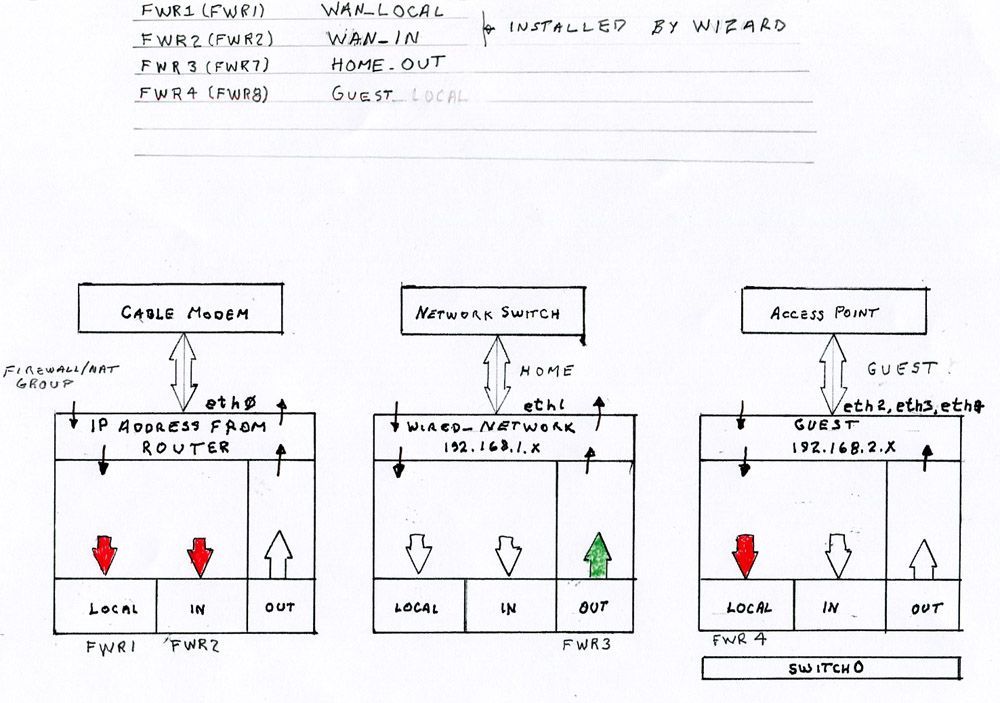 FWR1 (FWR1) WAN_LOCAL
FWR2 (FWR2) WAN_IN
INSTALLED BY WIZARD
FWR3 (FWR7) HOME_OUT
FWR4 (FWR8) GUEST_LOCAL
CABLE MODEM
NETWORK SWITCH
ACCESS POINT
FIREWALL/NAT
GROUP
HOME
GUEST
eth0
eth1
eth2, eth3, eth4
IP ADDRESS FROM
ROUTER
WIRED_NETWORK
192.168.1.X
GUEST
192.168.2.X
LOCAL IN OUT
LOCAL IN OUT
LOCAL IN OUT
FWR1 FWR2
FWR3
FWR4
SWITCH0